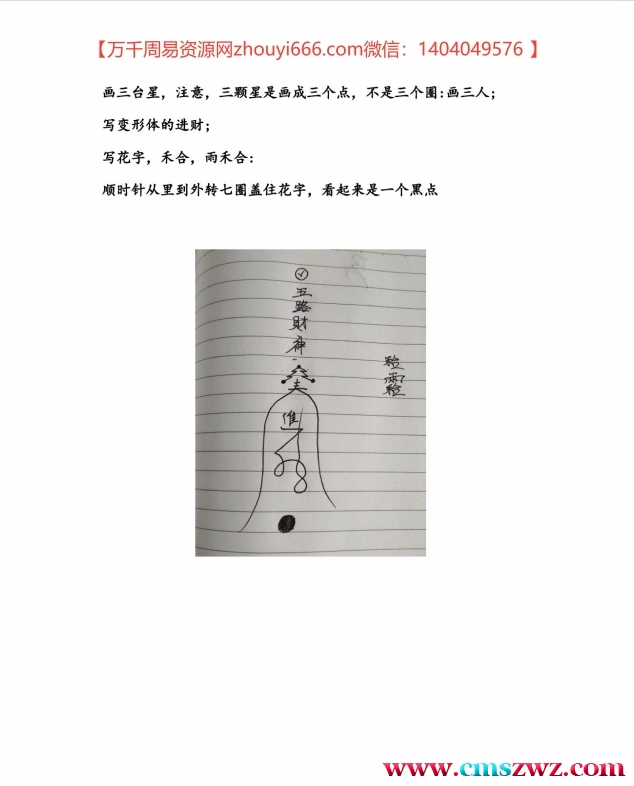 【万千周易资源网zhouyi666.com微信：1404049576 】
画三台星，注意，三颗星是画成三个点，不是三个圈:画三人；
写变形体的进财；
写花字，禾合，雨禾合：
顺时针从里到外转七圈盖住花字，看起来是一个黑点
五
路
財
神
進
www.cmszwz.com